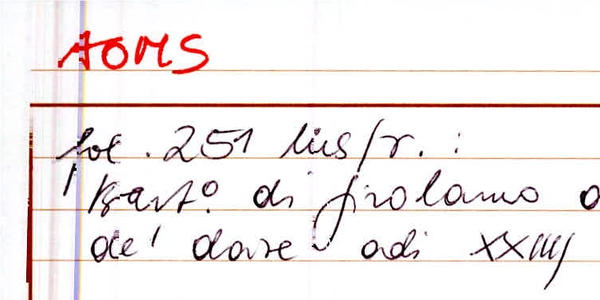 AOMS
fol. 251 lius/r. :
Bart.º di Jirolamo
de' dare adi XXIIIJ